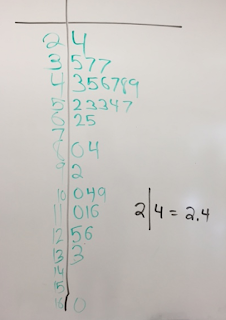 2|4
3|577
4|356789
5|23347
6|25
7|
8|04
9|2
10|049
11|016
12|56
13|3
14|
15|
16|0
2|4 = 2.4